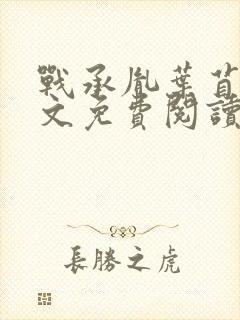 戰承胤葉苜
文免費閱讀
長勝之虎